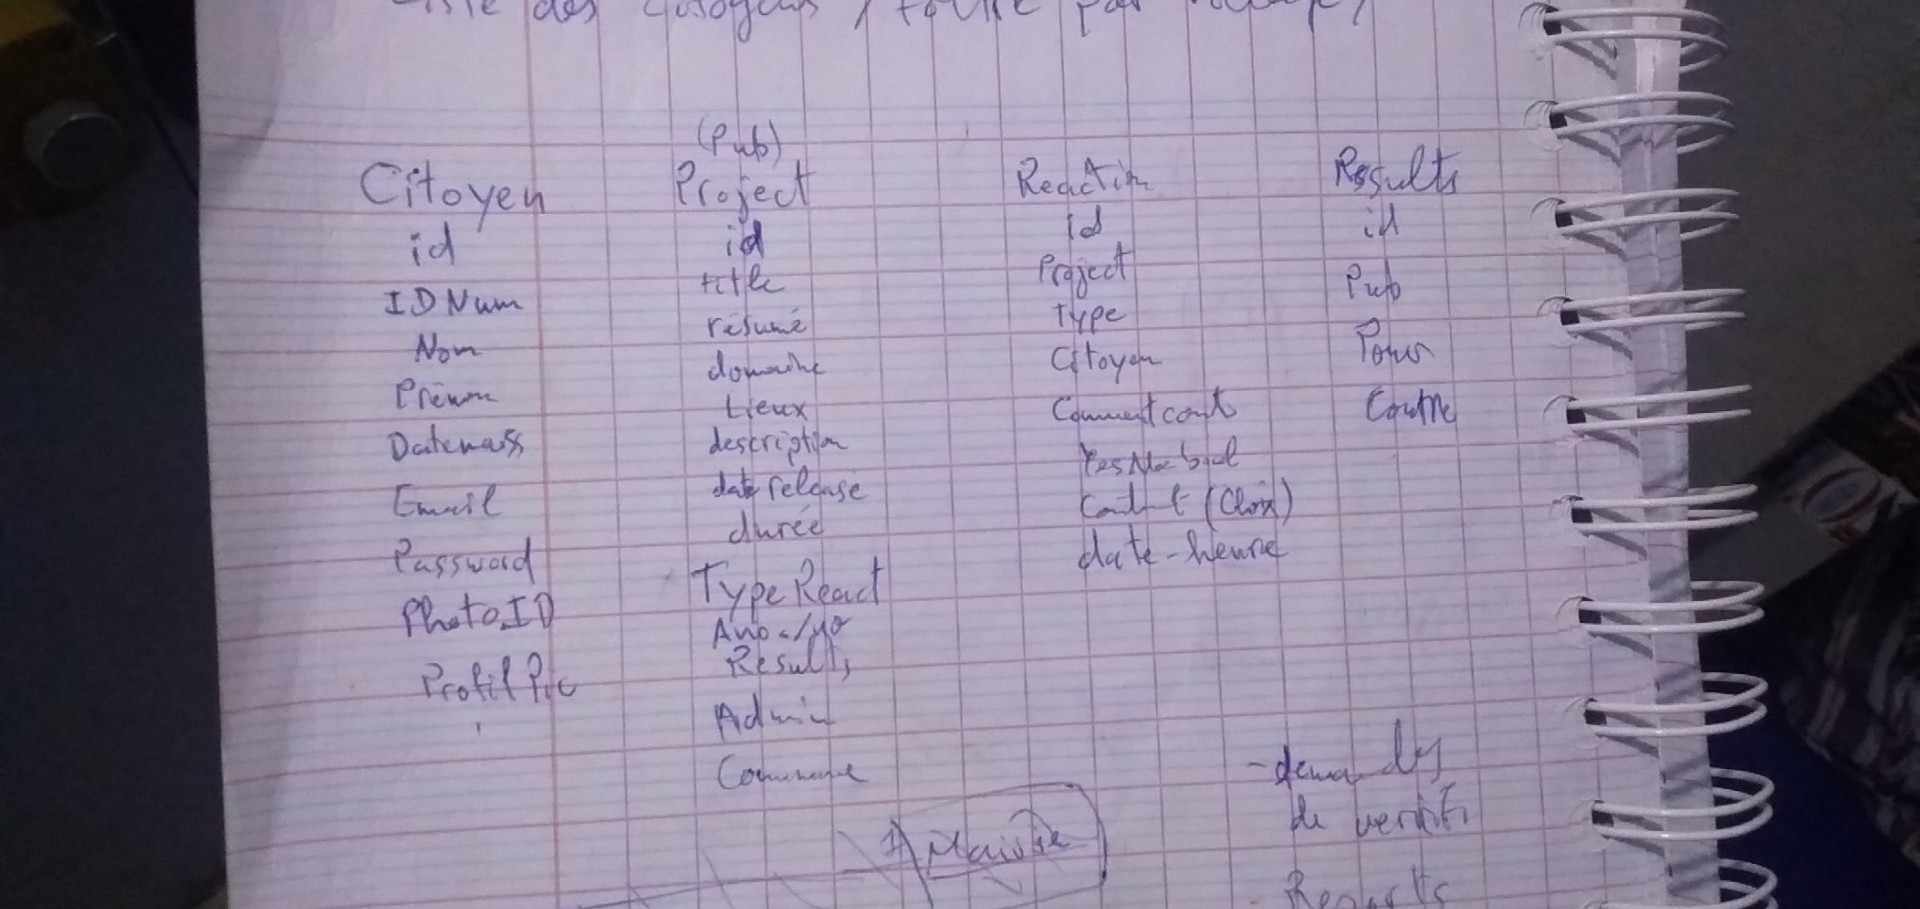 Liste des citoyens
(Pub)
Citoyen
id
ID Num
Nom
Prénom
Datenaiss
Email
Password
Photo ID
Profil Pic
Project
id
title
résumé
domaine
Lieux
description
date release
durée
Type React
Results
Admin
Commune
Reaction
id
Project
Type
Citoyen
Comment cont
YesNo bool
(Choix)
date-heure
Results
id
Pub
Pour
Contre
Mairie
de verifi
Reports